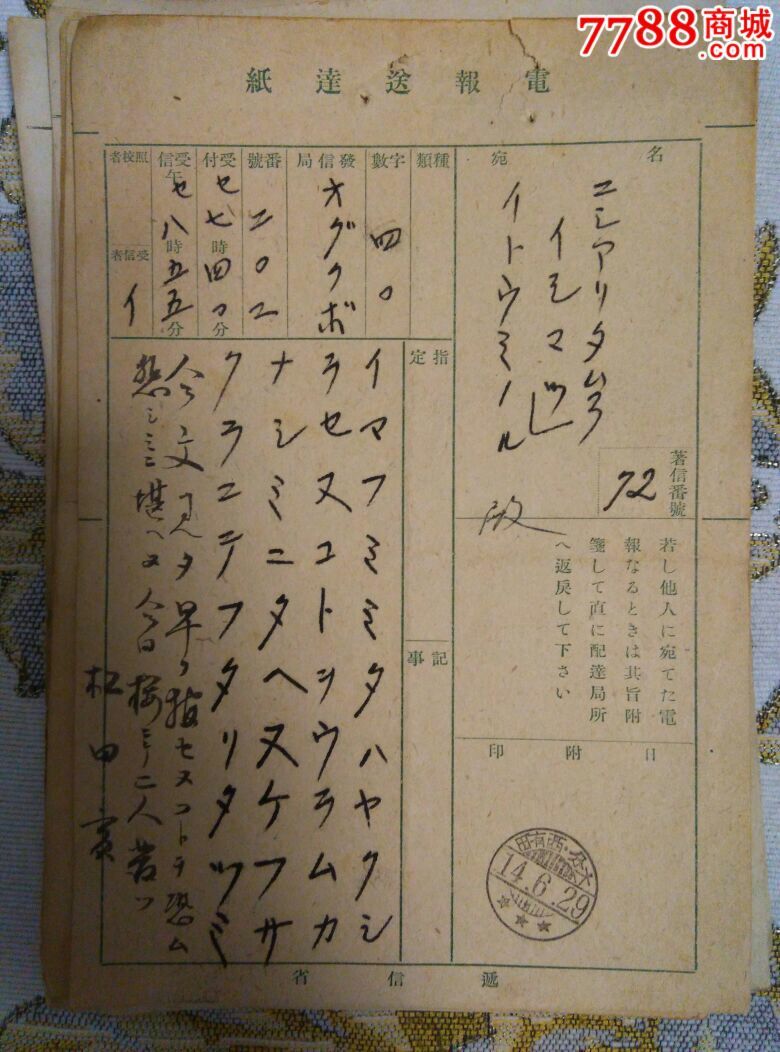 7788商城
.com
電報送達紙
宛名
ニシアリタムラ
イトウミノル
殿
著信番號
72
若し他人に宛てた電
報なるときは其旨附
箋して直に配達局所
へ返戻して下さい
日附印
西有田
14.6.29
種類
字數
四〇
發信局
オグクボ
番號
二〇二
受付
セ七時四〇分
受信
午セ八時五五分
照校者
受信者
イ
指定
記事
イマフミミタハヤクシ
ラセヌコトヲウラムカ
ナシミニタヘヌケフサ
クラニテフタリタツミ
今文見タ早ク報セヌコトヲ
悲シミニ堪ヘヌ今日桜ニテ二人
松田
遞信省